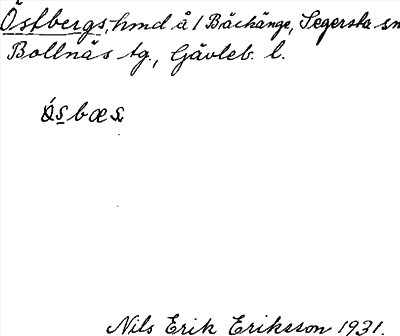 Östbergs, hmd å 1 Bäckänge, Segersta sn
Bollnäs tg., Gävleb. l.
ɷ́sbæs
Nils Erik Eriksson 1931.